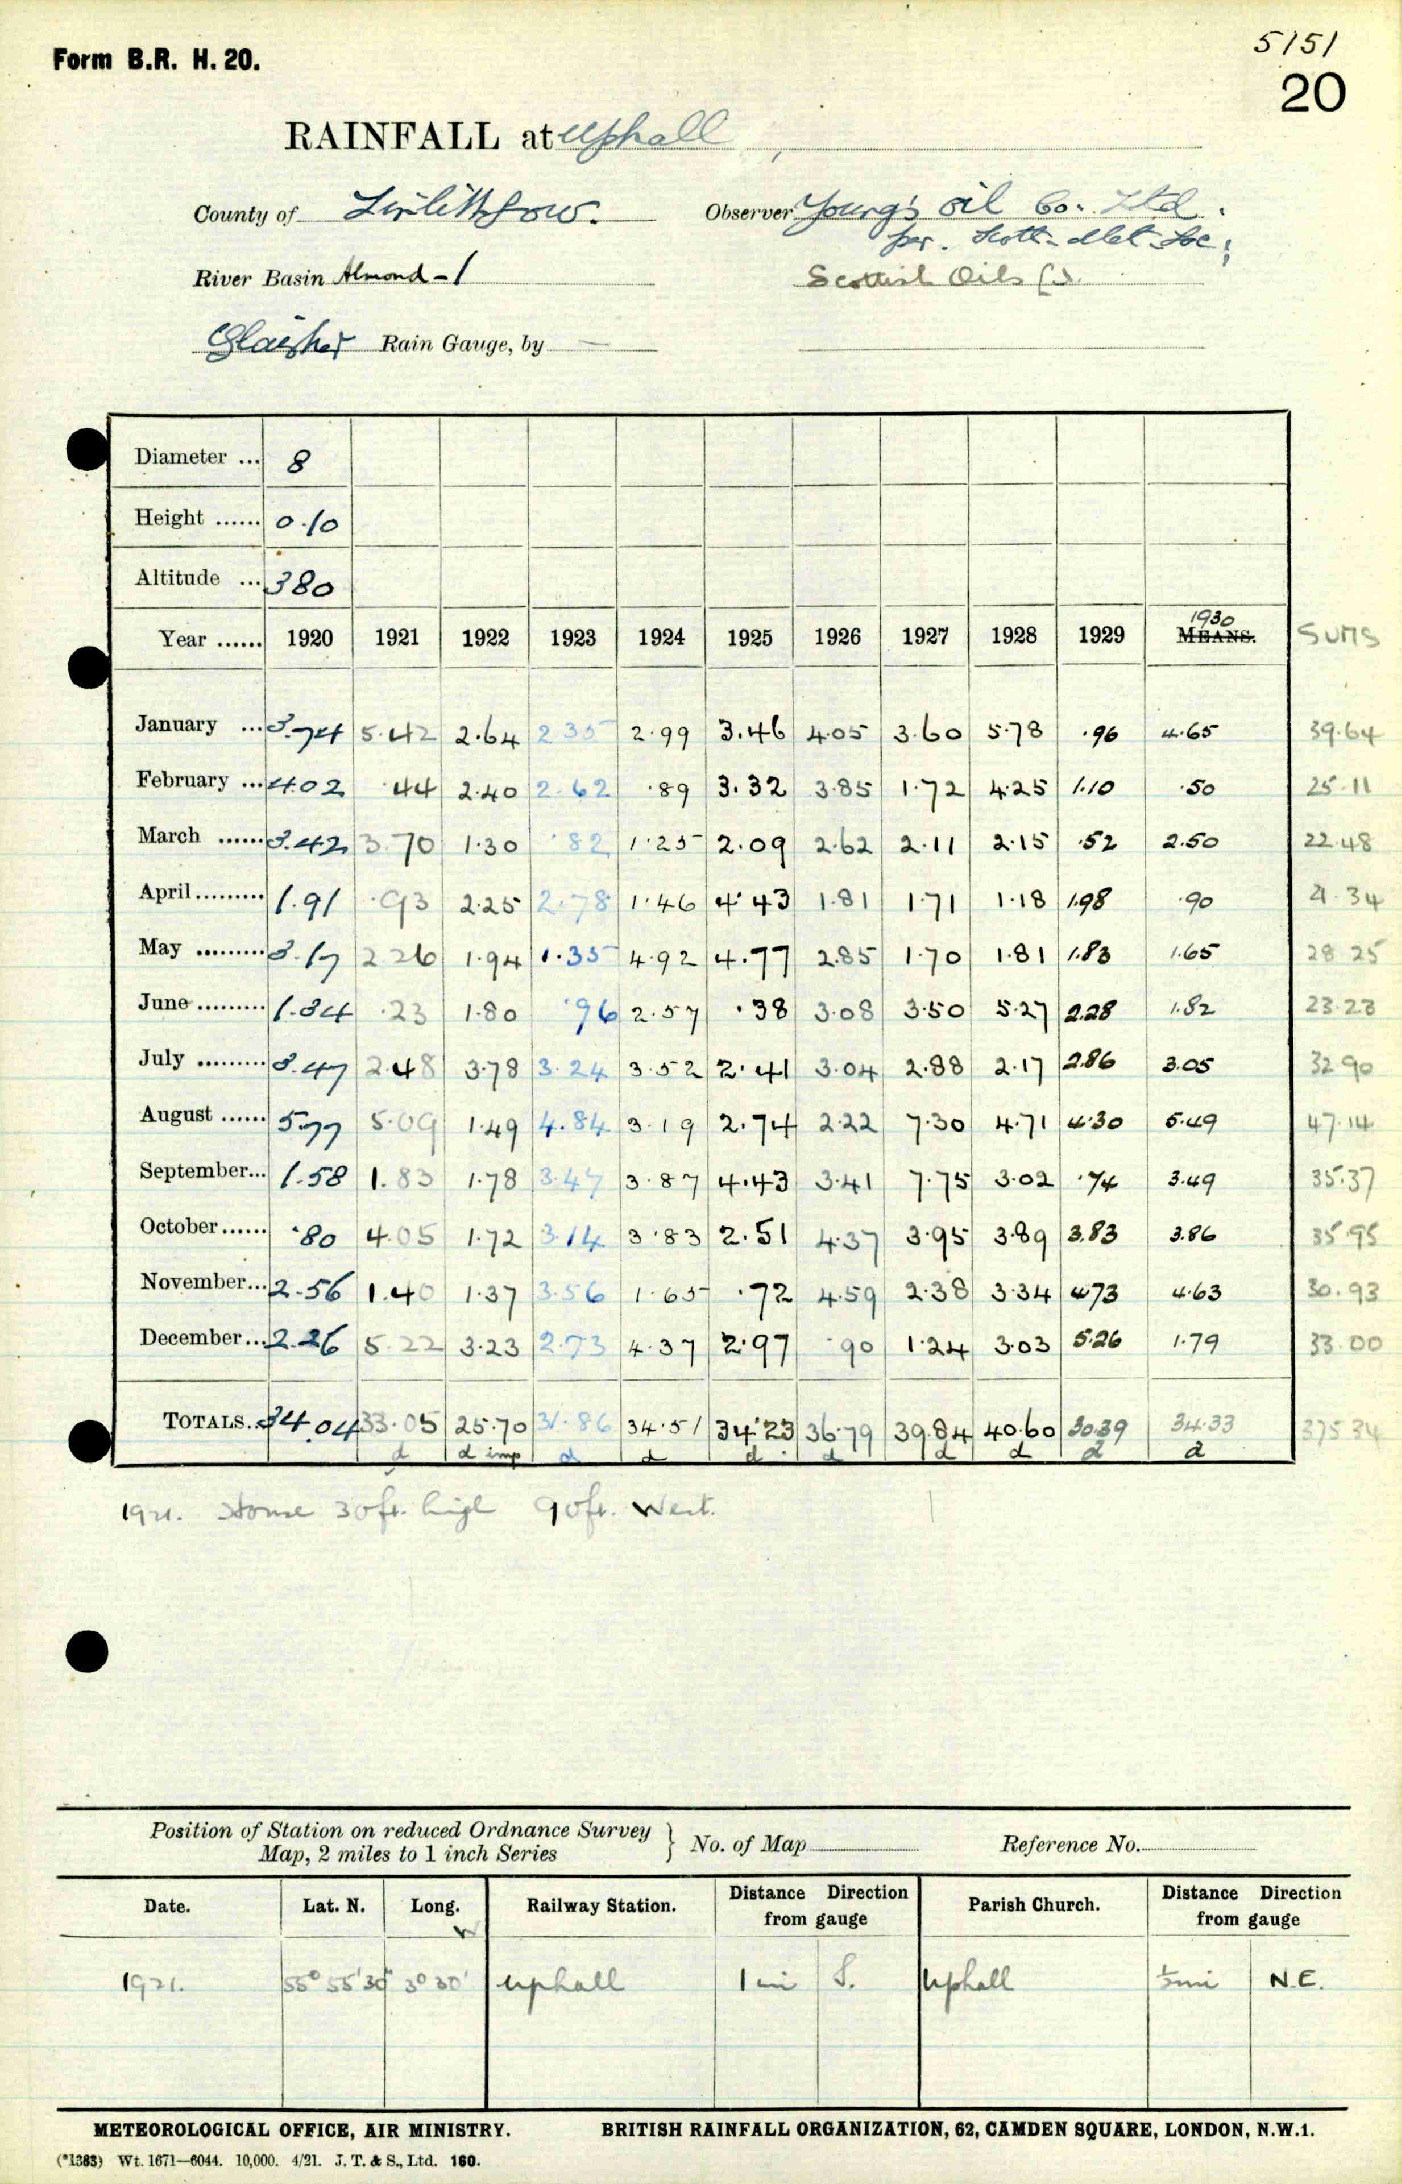 5151
Form B.R. H. 20.
20
RAINFALL at Uphall
County of Linlithgow. Observer Young's Oil Co. Ltd.
per. Scott. Met. Soc;
River Basin Almond - 1 Scottish Oils Ld.
Glaisher Rain Gauge, by —
Diameter ... 8
Height ...... 0.10
Altitude ... 380
Year ...... 1920 1921 1922 1923 1924 1925 1926 1927 1928 1929 1930 MEANS. SUMS
January ... 3.74 5.42 2.64 2.35 2.99 3.46 4.05 3.60 5.78 .96 4.65 39.64
February ... 4.02 .44 2.40 2.62 .89 3.32 3.85 1.72 4.25 1.10 .50 25.11
March ...... 3.42 3.70 1.30 .82 1.25 2.09 2.62 2.11 2.15 .52 2.50 22.48
April ......... 1.91 .93 2.25 2.78 1.46 4.43 1.81 1.71 1.18 1.98 .90 21.34
May ......... 3.17 2.26 1.94 1.35 4.92 4.77 2.85 1.70 1.81 1.83 1.65 28.25
June ......... 1.34 .23 1.80 .96 2.57 .38 3.08 3.50 5.27 2.28 1.82 23.23
July ......... 3.47 2.48 3.78 3.24 3.52 2.41 3.04 2.88 2.17 2.86 3.05 32.90
August ...... 5.77 5.09 1.49 4.84 3.19 2.74 2.22 7.30 4.71 4.30 5.49 47.14
September... 1.58 1.83 1.78 3.47 3.87 4.43 3.41 7.75 3.02 .74 3.49 35.37
October...... .80 4.05 1.72 3.14 3.83 2.51 4.37 3.95 3.89 3.83 3.86 35.95
November... 2.56 1.40 1.37 3.56 1.65 .72 4.59 2.38 3.34 4.73 4.63 30.93
December... 2.26 5.22 3.23 2.73 4.37 2.97 .90 1.24 3.03 5.26 1.79 33.00
TOTALS.. 34.04 33.05 25.70 31.86 34.51 34.23 36.79 39.84 40.60 30.39 34.33 375.34
d d imp d d d d d d d d
1921. House 30ft. high 90ft. West.
Position of Station on reduced Ordnance Survey
Map, 2 miles to 1 inch Series } No. of Map Reference No.
Date. Lat. N. Long. W Railway Station. Distance Direction from gauge Parish Church. Distance Direction from gauge
1921. 55° 55' 30" 3° 30' Uphall 1 mi S. Uphall ½mi N.E.
METEOROLOGICAL OFFICE, AIR MINISTRY. BRITISH RAINFALL ORGANIZATION, 62, CAMDEN SQUARE, LONDON, N.W.1.
(*1383) Wt. 1671—6044. 10,000. 4/21. J. T. & S., Ltd. 160.